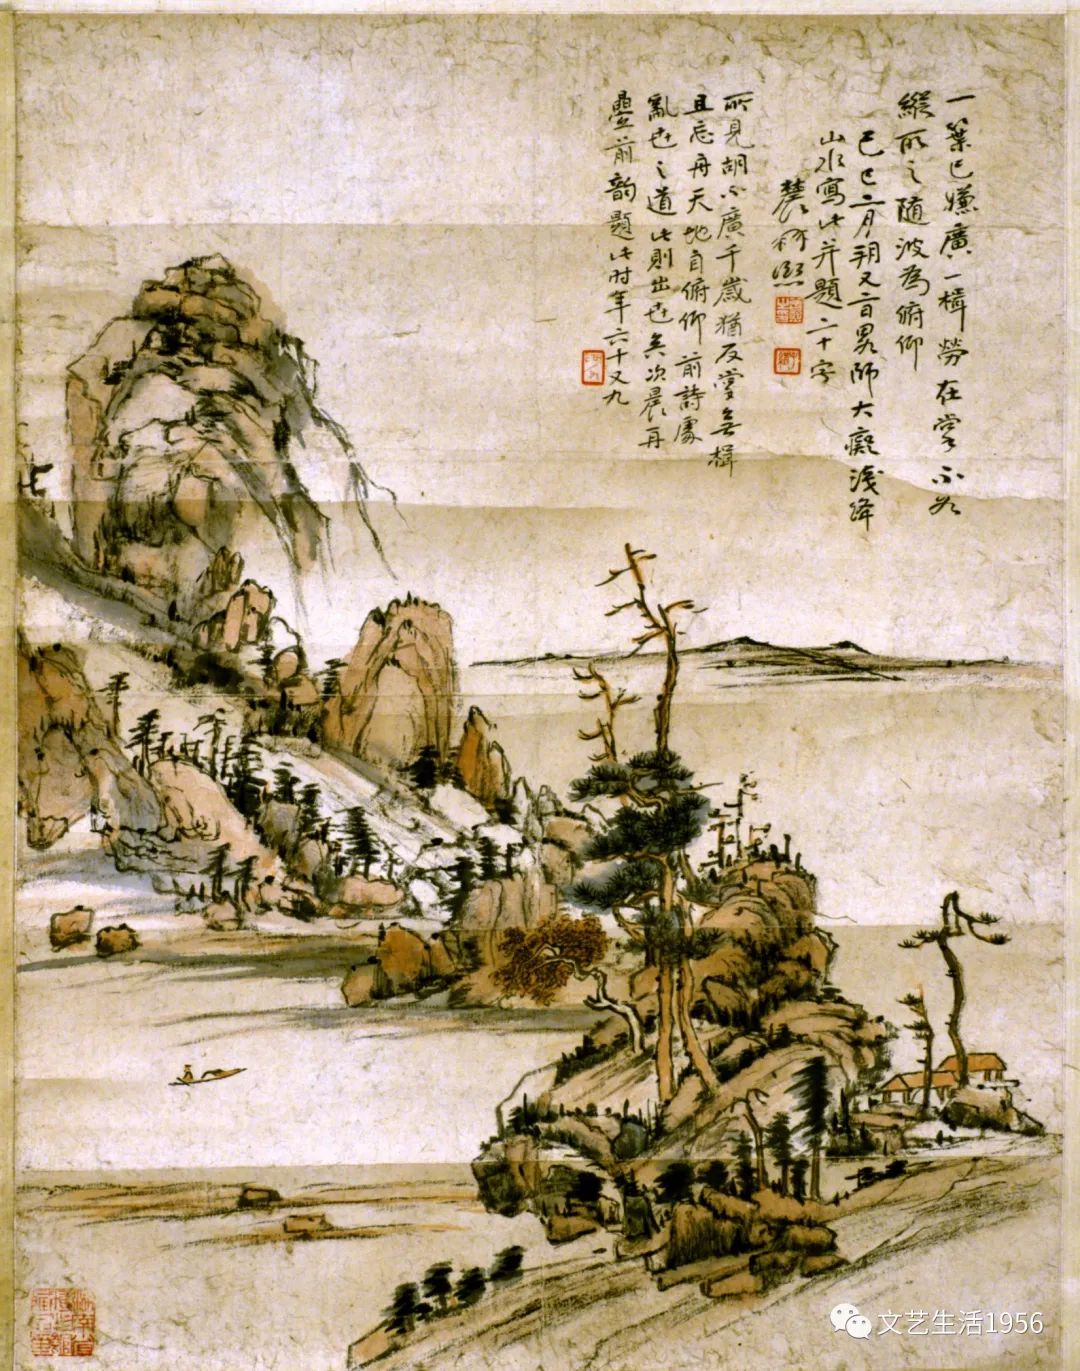 一葉已嫌廣一楫勞在掌不如
縱所之隨波為俯仰
己巳二月朔又二日畧師大癡淺絳
山水寫此并題二十字
農髯熙
所見胡不廣千歲猶反掌無楫
且忘舟天地自俯仰 前詩處
亂世之道此則出世矣次晨再
疊前韵題此时年六十又九
文艺生活1956